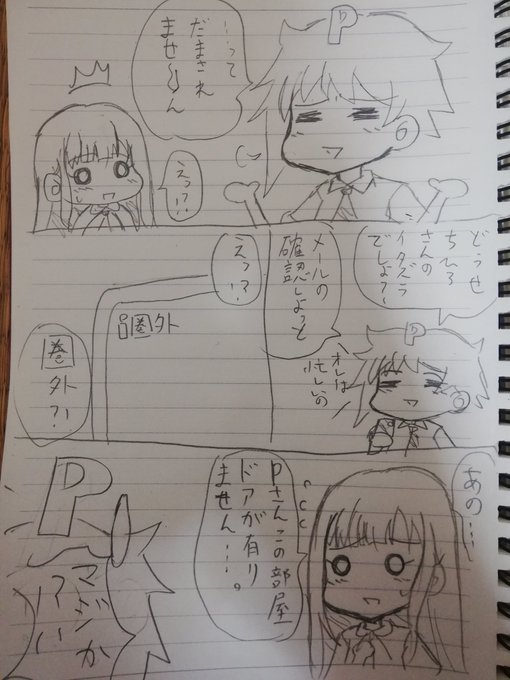 P
…って
だまされ
ませ〜ん
えっ?!
どうせ
ちひろ
さんの
イタズラ
でしょ〜
P
メールの
確認しよっと
オレは
忙しいの
えっ?!
圏外
圏外?!
あの…
Pさんこの部屋
ドアが有り
ません…。
P
マジか